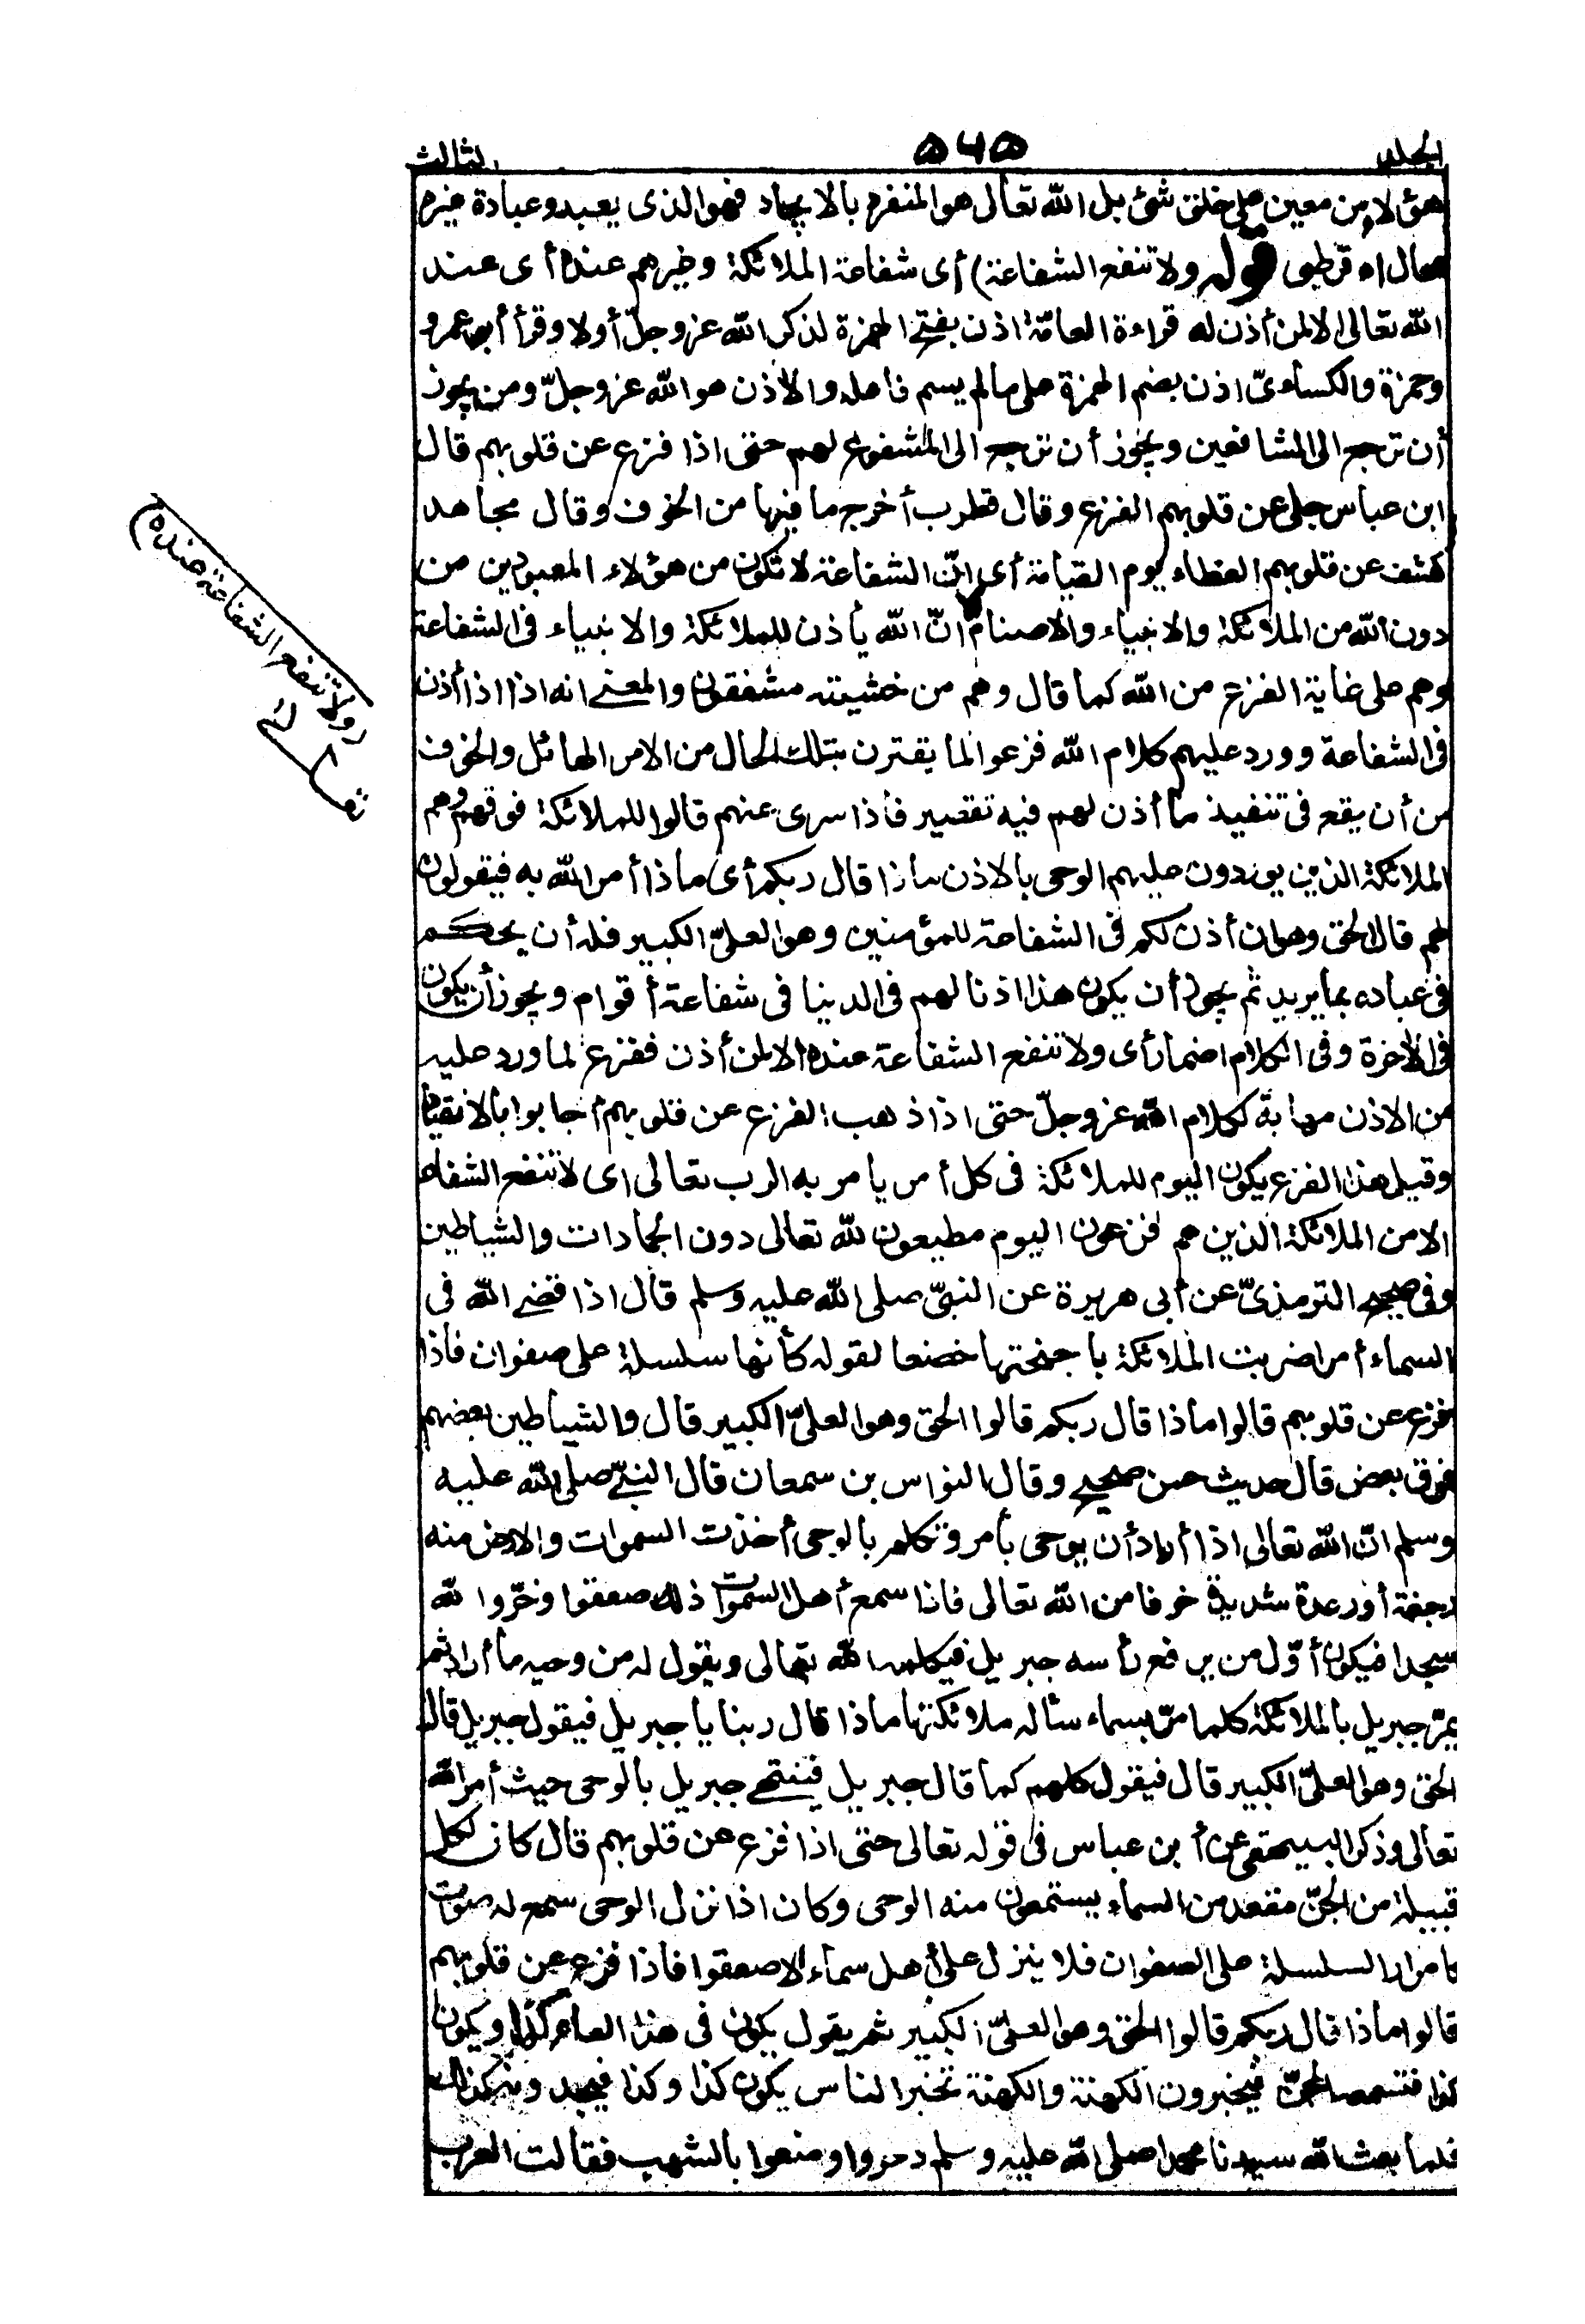 الجلد ٥٧٥ الثالث
هؤلاء من معين على خلق شئ بل الله تعالى هو المنفرد بالايجاد فهو الذى يعبد وعبادة غيره
محال اه قرطبى قوله ولا تنفع الشفاعة) أى شفاعة الملائكة وغيرهم عنده أى عند
الله تعالى الا لمن أذن له قراءة العامّة اذن بفتح الهمزة لذكر الله عز وجلّ أولا وقرأ أبو عمرو
وحمزة والكساءىّ اذن بضم الهمزة على ما لم يسم فاعله والآذن هو الله عز وجلّ ومن يجوز
أن ترجع الى الشافعين ويجوز أن ترجع الى المشفوع لهم حتى اذا فزع عن قلوبهم قال
ابن عباس جلى عن قلوبهم الفزع وقال قطرب أخرج ما فيها من الخوف وقال مجاهد
كشف عن قلوبهم الغطاء يوم القيامة أى انّ الشفاعة لا تكون من هؤلاء المعبودين من
دون الله من الملائكة والانبياء والاصنام انّ الله يأذن للملائكة والانبياء فى الشفاعة
وهم على غاية الفزع من الله كما قال وهم من خشيته مشفقون والمعنى انه اذا اذا أذن
فى الشفاعة وورد عليهم كلام الله فزعوا لما يقترن بتلك الحال من الامر الهائل والخوف
من أن يقع فى تنفيذ ما أذن لهم فيه تقصير فأذا سرى عنهم قالوا للملائكة فوقهم وهم
الملائكة الذين يوردون عليهم الوحى بالاذن ماذا قال ربكم أى ماذا أمر الله به فيقولون
لهم قال الحق وهو ان أذن لكم فى الشفاعة للمؤمنين وهو العلىّ الكبير فله أن يحكم
فى عباده بما يريد ثم يجوز أن يكون هذا اذنا لهم فى الدنيا فى شفاعة أقوام ويجوز أن يكون
فى الآخرة وفى الكلام اضمار أى ولا تنفع الشفاعة عنده الا لمن أذن ففزع لما ورد عليه
من الاذن مهابة لكلام الله عز وجلّ حتى اذا ذهب الفزع عن قلوبهم أجابوا بالانقياد
وقيل هذا الفزع يكون اليوم للملائكة فى كل أمر يامر به الرب تعالى اى لا تنفع الشفاعة
الا من الملائكة الذين هم فزعون اليوم مطيعون لله تعالى دون الجمادات والشياطين
وفى صحيح الترمذىّ عن أبى هريرة عن النبىّ صلى الله عليه وسلم قال اذا قضى الله فى
السماء أمرا ضربت الملائكة باجنحتها خضعا لقوله كأنها سلسلة على صفوان فأذا
فزع عن قلوبهم قالوا ماذا قال ربكم قالوا الحق وهو العلىّ الكبير قال والشياطين بعضهم
فوق بعض قال حديث حسن صحيح وقال النواس بن سمعان قال النبىّ صلى الله عليه
وسلم انّ الله تعالى اذا أراد أن يوحى بأمر وتكلم بالوحى أخذت السموات والارض منه
رجفة أو رعدة شديدة خوفا من الله تعالى فاذا سمع أهل السموات ذلك صعقوا وخرّوا لله
سجدا فيكون أوّل من يرفع رأسه جبريل فيكلمه الله تعالى ويقول له من وحيه ما أراد ثم
يمرّ جبريل بالملائكة كلما مرّ بسماء سأله ملائكتها ماذا قال ربنا يا جبريل فيقول جبريل قال
الحق وهو العلىّ الكبير قال فيقول كلهم كما قال جبريل فينتهى جبريل بالوحى حيث أمر الله
تعالى وذكر البيهقى عن أبن عباس فى قوله تعالى حتى اذا فزع عن قلوبهم قال كان لكل
قبيلة من الجنّ مقعد من السماء يستمعون منه الوحى وكان اذا نزل الوحى سمع له صوت
كامرار السلسلة على الصفوان فلا ينزل على أهل سماء الا صعقوا فأذا فزع عن قلوبهم
قالوا ماذا قال ربكم قالوا الحق وهو العلىّ الكبير ثم يقول يكون فى هذا العام كذا ويكون
كذا فتسمعه الجنّ فيخبرون الكهنة والكهنة تخبر الناس يكون كذا وكذا فيجدونه كذلك
فلما بعث الله سيدنا محمدا صلى الله عليه وسلم دحروا ومنعوا بالشهب فقالت العرب
(ولا تنفع الشفاعة عنده)
تعالى